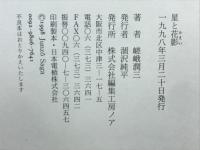 星と花影
一九九八年三月二十日発行
著者 嵯峨潤三
発行者 涸沢純平
発行所 株式会社編集工房ノア
大阪市北区中津三―一七―五
電話〇六(三七三)三六四一
FAX〇六(三七三)三六四二
振替〇〇九四〇―七―三〇六四五七
印刷製本・日本電植株式会社
©1998 Junzo Saga
不良本はおとりかえいたします